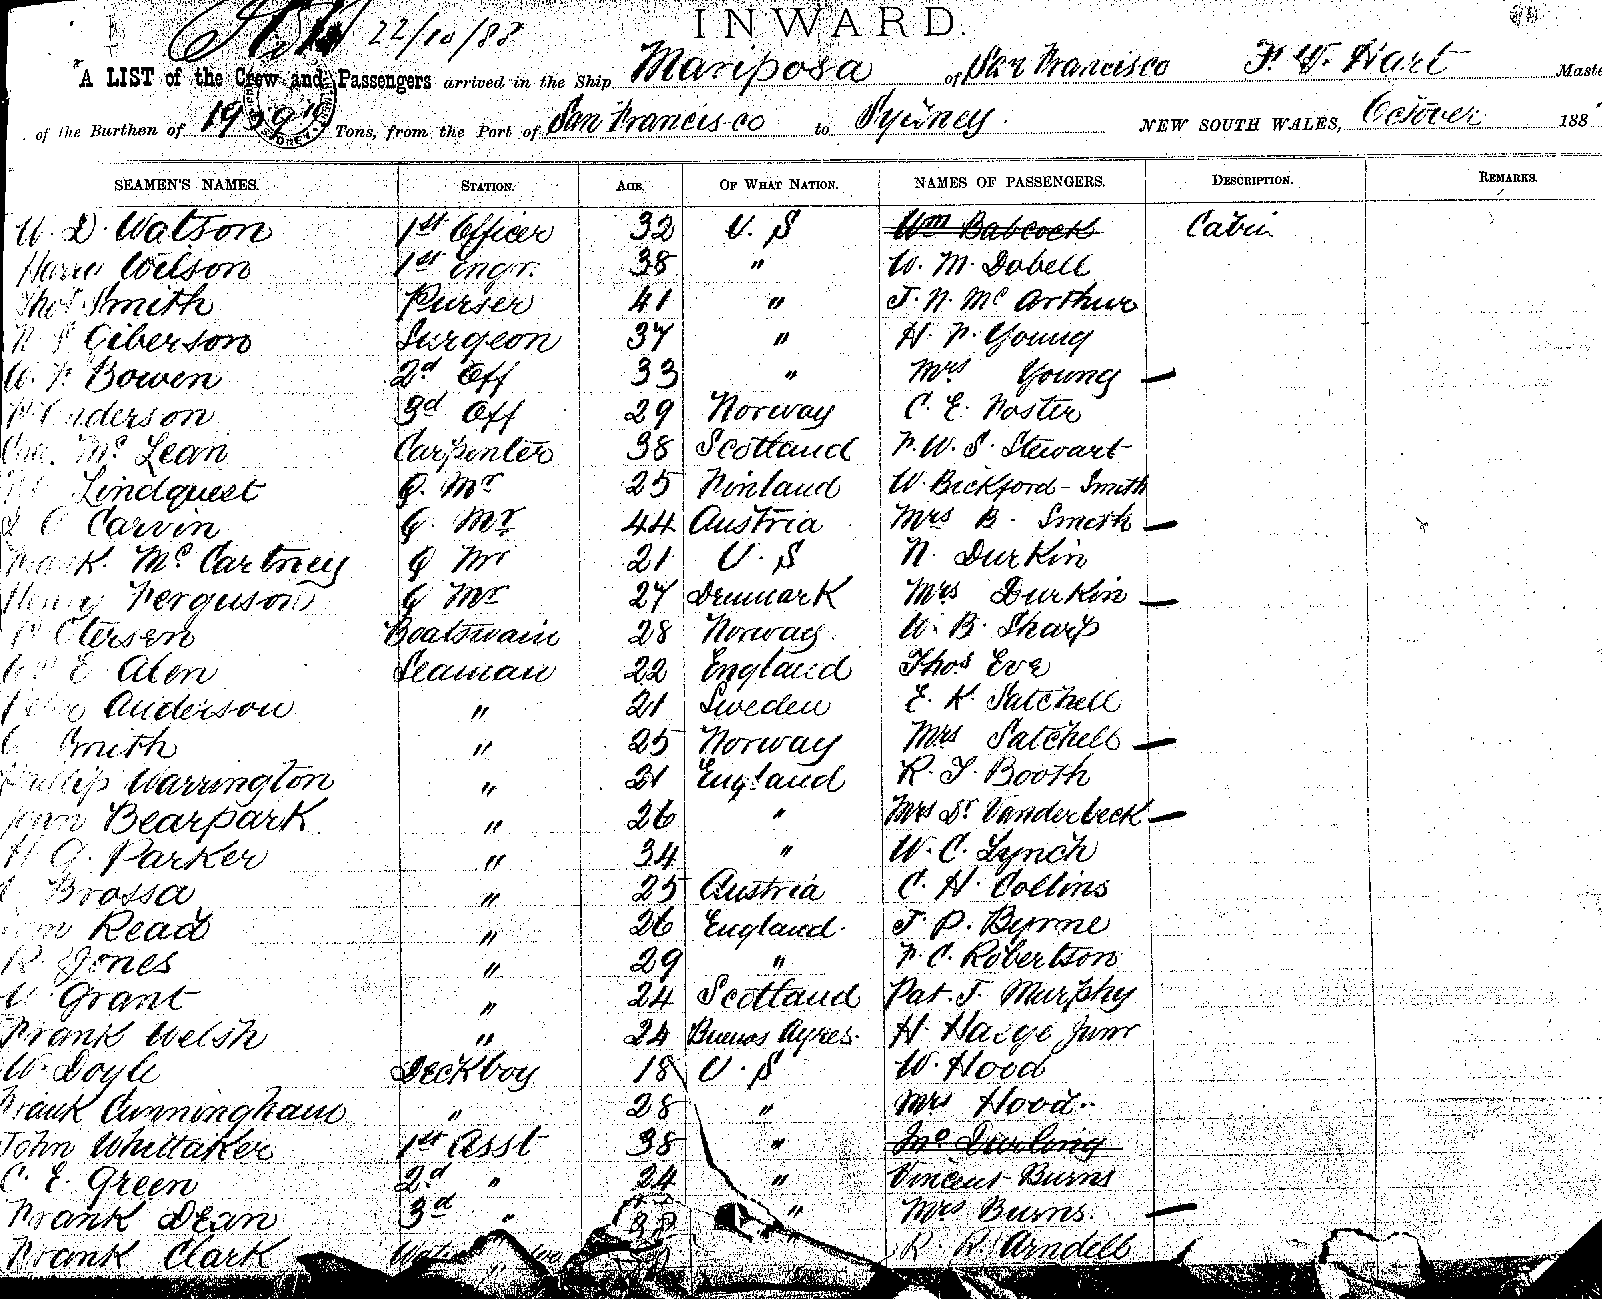 22/10/88
INWARD.
A LIST of the Crew and Passengers arrived in the Ship Mariposa of San Francisco F. W. Hart Maste
of the Burthen of Tons, from the Port of San Francisco to Sydney. NEW SOUTH WALES, October 188
SEAMEN'S NAMES. STATION. AGE. OF WHAT NATION. NAMES OF PASSENGERS. DESCRIPTION. REMARKS.
W. D. Watson 1st Officer 32 U. S Wm Babcock Cabin
Wilson 1st Engr. 38 " W. M. Dobell
Thos Smith Purser 41 " J. N. Mc Arthur
Giberson Surgeon 37 " H. F. Young
W. F. Bowen 2d Off 33 " Mrs Young —
Anderson 3d Off 29 Norway C. E. Foster
Mc Lean Carpenter 38 Scotland F. W. S. Stewart
Lindquest Q. Mr 25 Finland W. Bickford-Smith
Carvin Q. Mr 44 Austria Mrs B. Smith —
Frank Mc Cartney Q Mr 21 U. S N. Durkin
Henry Ferguson Q Mr 27 Denmark Mrs Durkin —
Petersen Boatswain 28 Norway W. B. Sharp
E Alen Seaman 22 England Thos Eva
Anderson " 21 Sweden E. K. Satchell
Smith " 25 Norway Mrs Satchell —
Phillip Warrington " 21 England R. T. Booth
John Bearpark " 26 " Mrs Dr Vanderbeck —
H G. Parker " 34 " W. C. Lynch
Brossa " 25 Austria C. H. Collins
Read " 26 England. J. P. Byrne
R. Jones " 29 " F. C. Robertson
W. Grant " 24 Scotland Pat. J. Murphy
Frank Welsh " 24 Buenos Ayres. H. Haege Junr
W. Doyle Deckboy 18 U. S W. Hood
Frank Cunningham " 28 " Mrs Hood
John Whittaker 1st Asst 38 " Jno Durling
C. E. Green 2d " 24 " Vincent Burns
Frank Dean 3d " " Mrs Burns. —
Frank Clark " R. R. Arndell